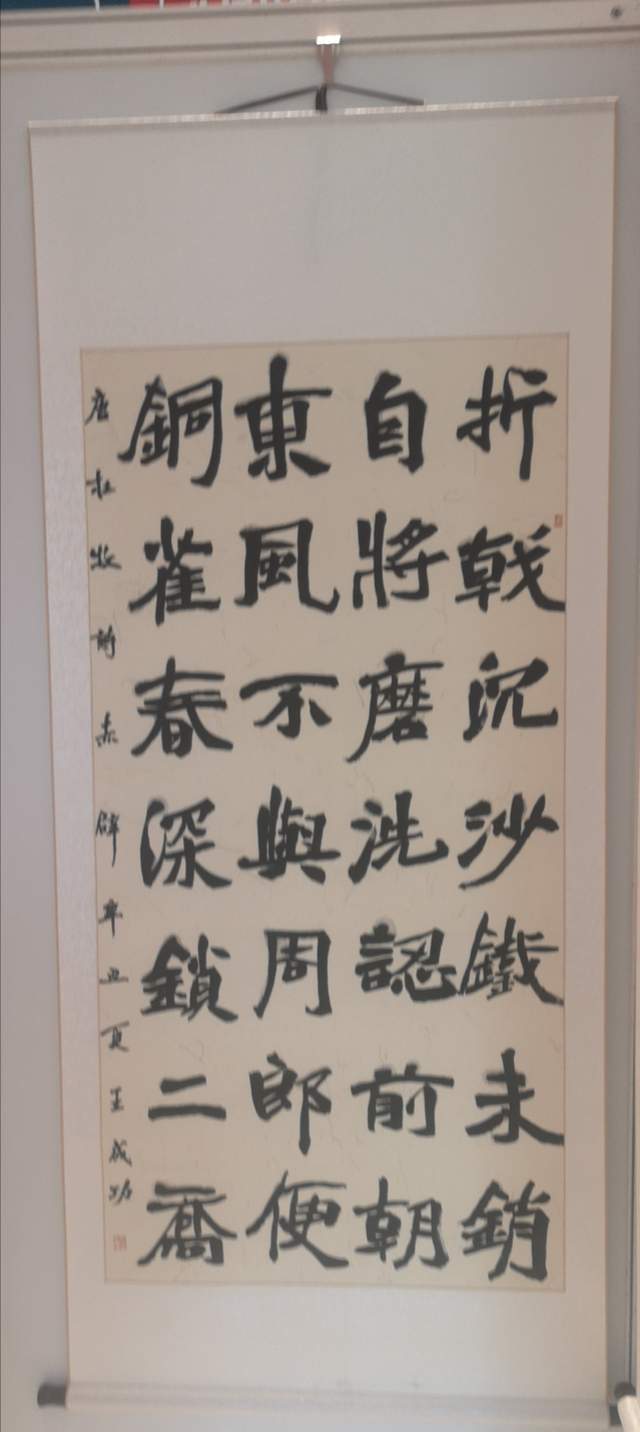 折戟沉沙鐵未銷
自將磨洗認前朝
東風不與周郎便
銅雀春深鎖二喬
唐杜牧詩赤壁辛丑夏王成功